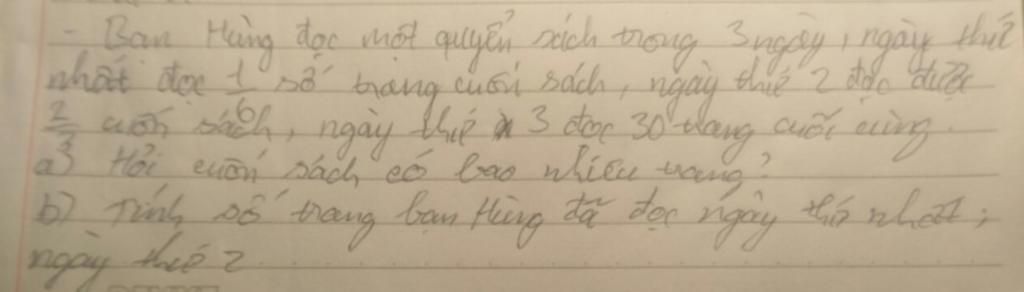 - Bạn Hùng đọc một quyển sách trong 3 ngày, ngày thứ
nhất đọc 1/6 số trang cuốn sách, ngày thứ 2 đọc được
2/3 cuốn sách, ngày thứ 3 đọc 30 trang cuối cùng.
a) Hỏi cuốn sách có bao nhiêu trang?
b) Tính số trang bạn Hùng đã đọc ngày thứ nhất;
ngày thứ 2